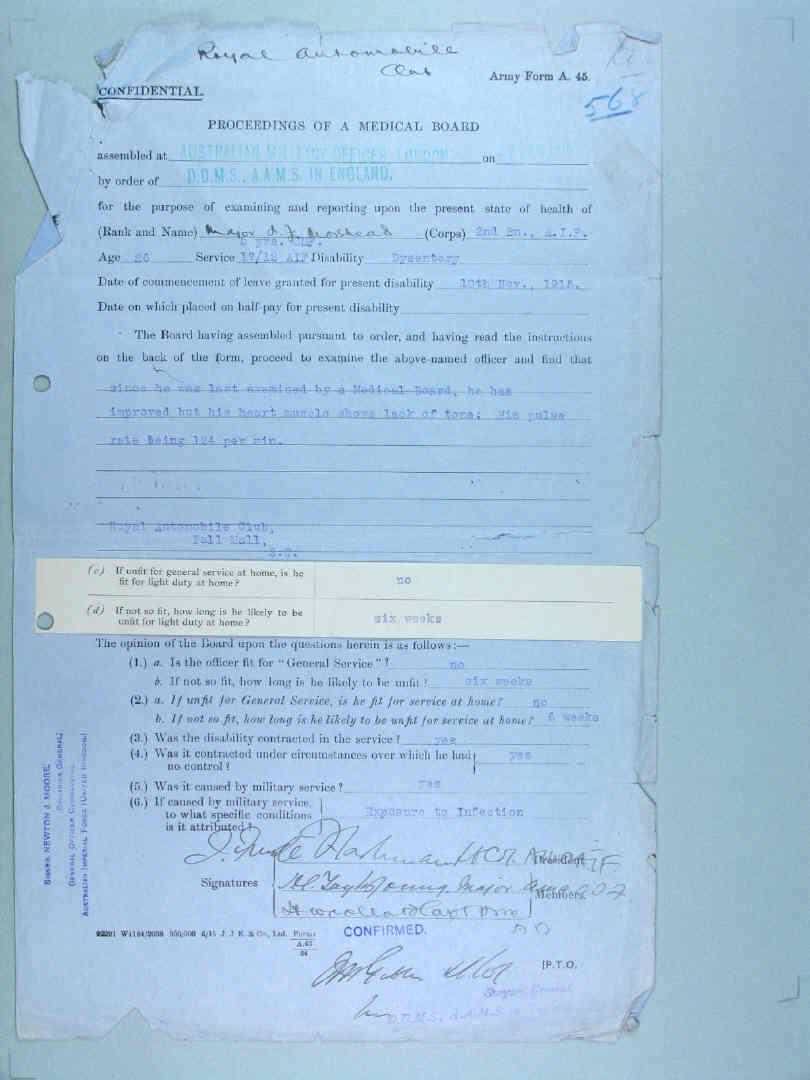 Royal Automobile
Club
Army Form A. 45.
CONFIDENTIAL
568
PROCEEDINGS OF A MEDICAL BOARD
assembled at AUSTRALIAN MILITARY OFFICES, LONDON on
by order of D.D.M.S., A.A.M.S. IN ENGLAND.
for the purpose of examining and reporting upon the present state of health of
(Rank and Name) Major L. J. Morshead (Corps) 2nd Bn., A.I.F.
Age 26 Service 17/12 AIF Disability Dysentery
Date of commencement of leave granted for present disability 10th Nov., 1915.
Date on which placed on half-pay for present disability
The Board having assembled pursuant to order, and having read the instructions
on the back of the form, proceed to examine the above-named officer and find that
since he was last examined by a Medical Board, he has
improved but his heart muscle shows lack of tone: His pulse
rate being 124 per min.
Royal Automobile Club,
Pall Mall,
S.W.
(c) If unfit for general service at home, is he
fit for light duty at home? no
(d) If not so fit, how long is he likely to be
unfit for light duty at home? six weeks
The opinion of the Board upon the questions herein is as follows:—
(1.) a. Is the officer fit for "General Service"? no
b. If not so fit, how long is he likely to be unfit? six weeks
(2.) a. If unfit for General Service, is he fit for service at home? no
b. If not so fit, how long is he likely to be unfit for service at home? 6 weeks
(3.) Was the disability contracted in the service? yes
(4.) Was it contracted under circumstances over which he had
no control? yes
(5.) Was it caused by military service? yes
(6.) If caused by military service,
to what specific conditions
is it attributed? Exposure to Infection
President
Signatures
Major
Members
Capt
22291 W1184/2038 350,000 4/15 J. J. K. & Co., Ltd. Forms
A.45
CONFIRMED.
[P.T.O.
Surgeon General
D.D.M.S., A.A.M.S.
SIGNED NEWTON J. MOORE
BRIGADIER GENERAL
GENERAL OFFICER COMMANDING
AUSTRALIAN IMPERIAL FORCE (UNITED KINGDOM)